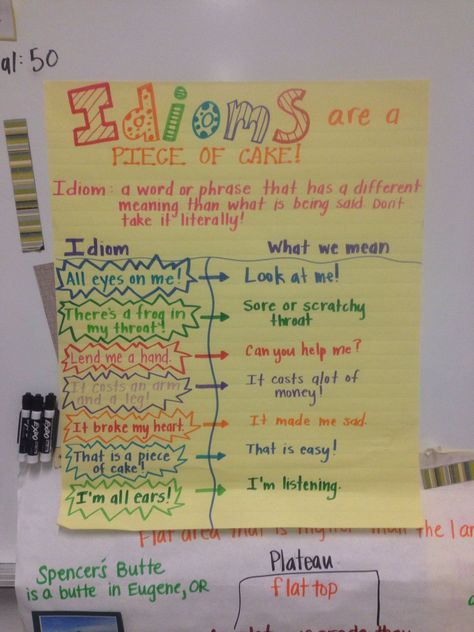 al: 50
Idioms are a
PIECE OF CAKE!
Idiom: a word or phrase that has a different
meaning than what is being said. Don't
take it literally!
Idiom
What we mean
All eyes on me!
Look at me!
There's a frog in
my throat!
Sore or scratchy
throat
Lend me a hand.
Can you help me?
It costs an arm
and a leg!
It costs alot of
money!
It broke my heart.
It made me sad.
That is a piece
of cake!
That is easy!
I'm all ears!
I'm listening.
EXPO
EXPO
EXPO
Flat area that is higher than the lan
Spencer's Butte
is a butte in Eugene, OR
Plateau
flat top